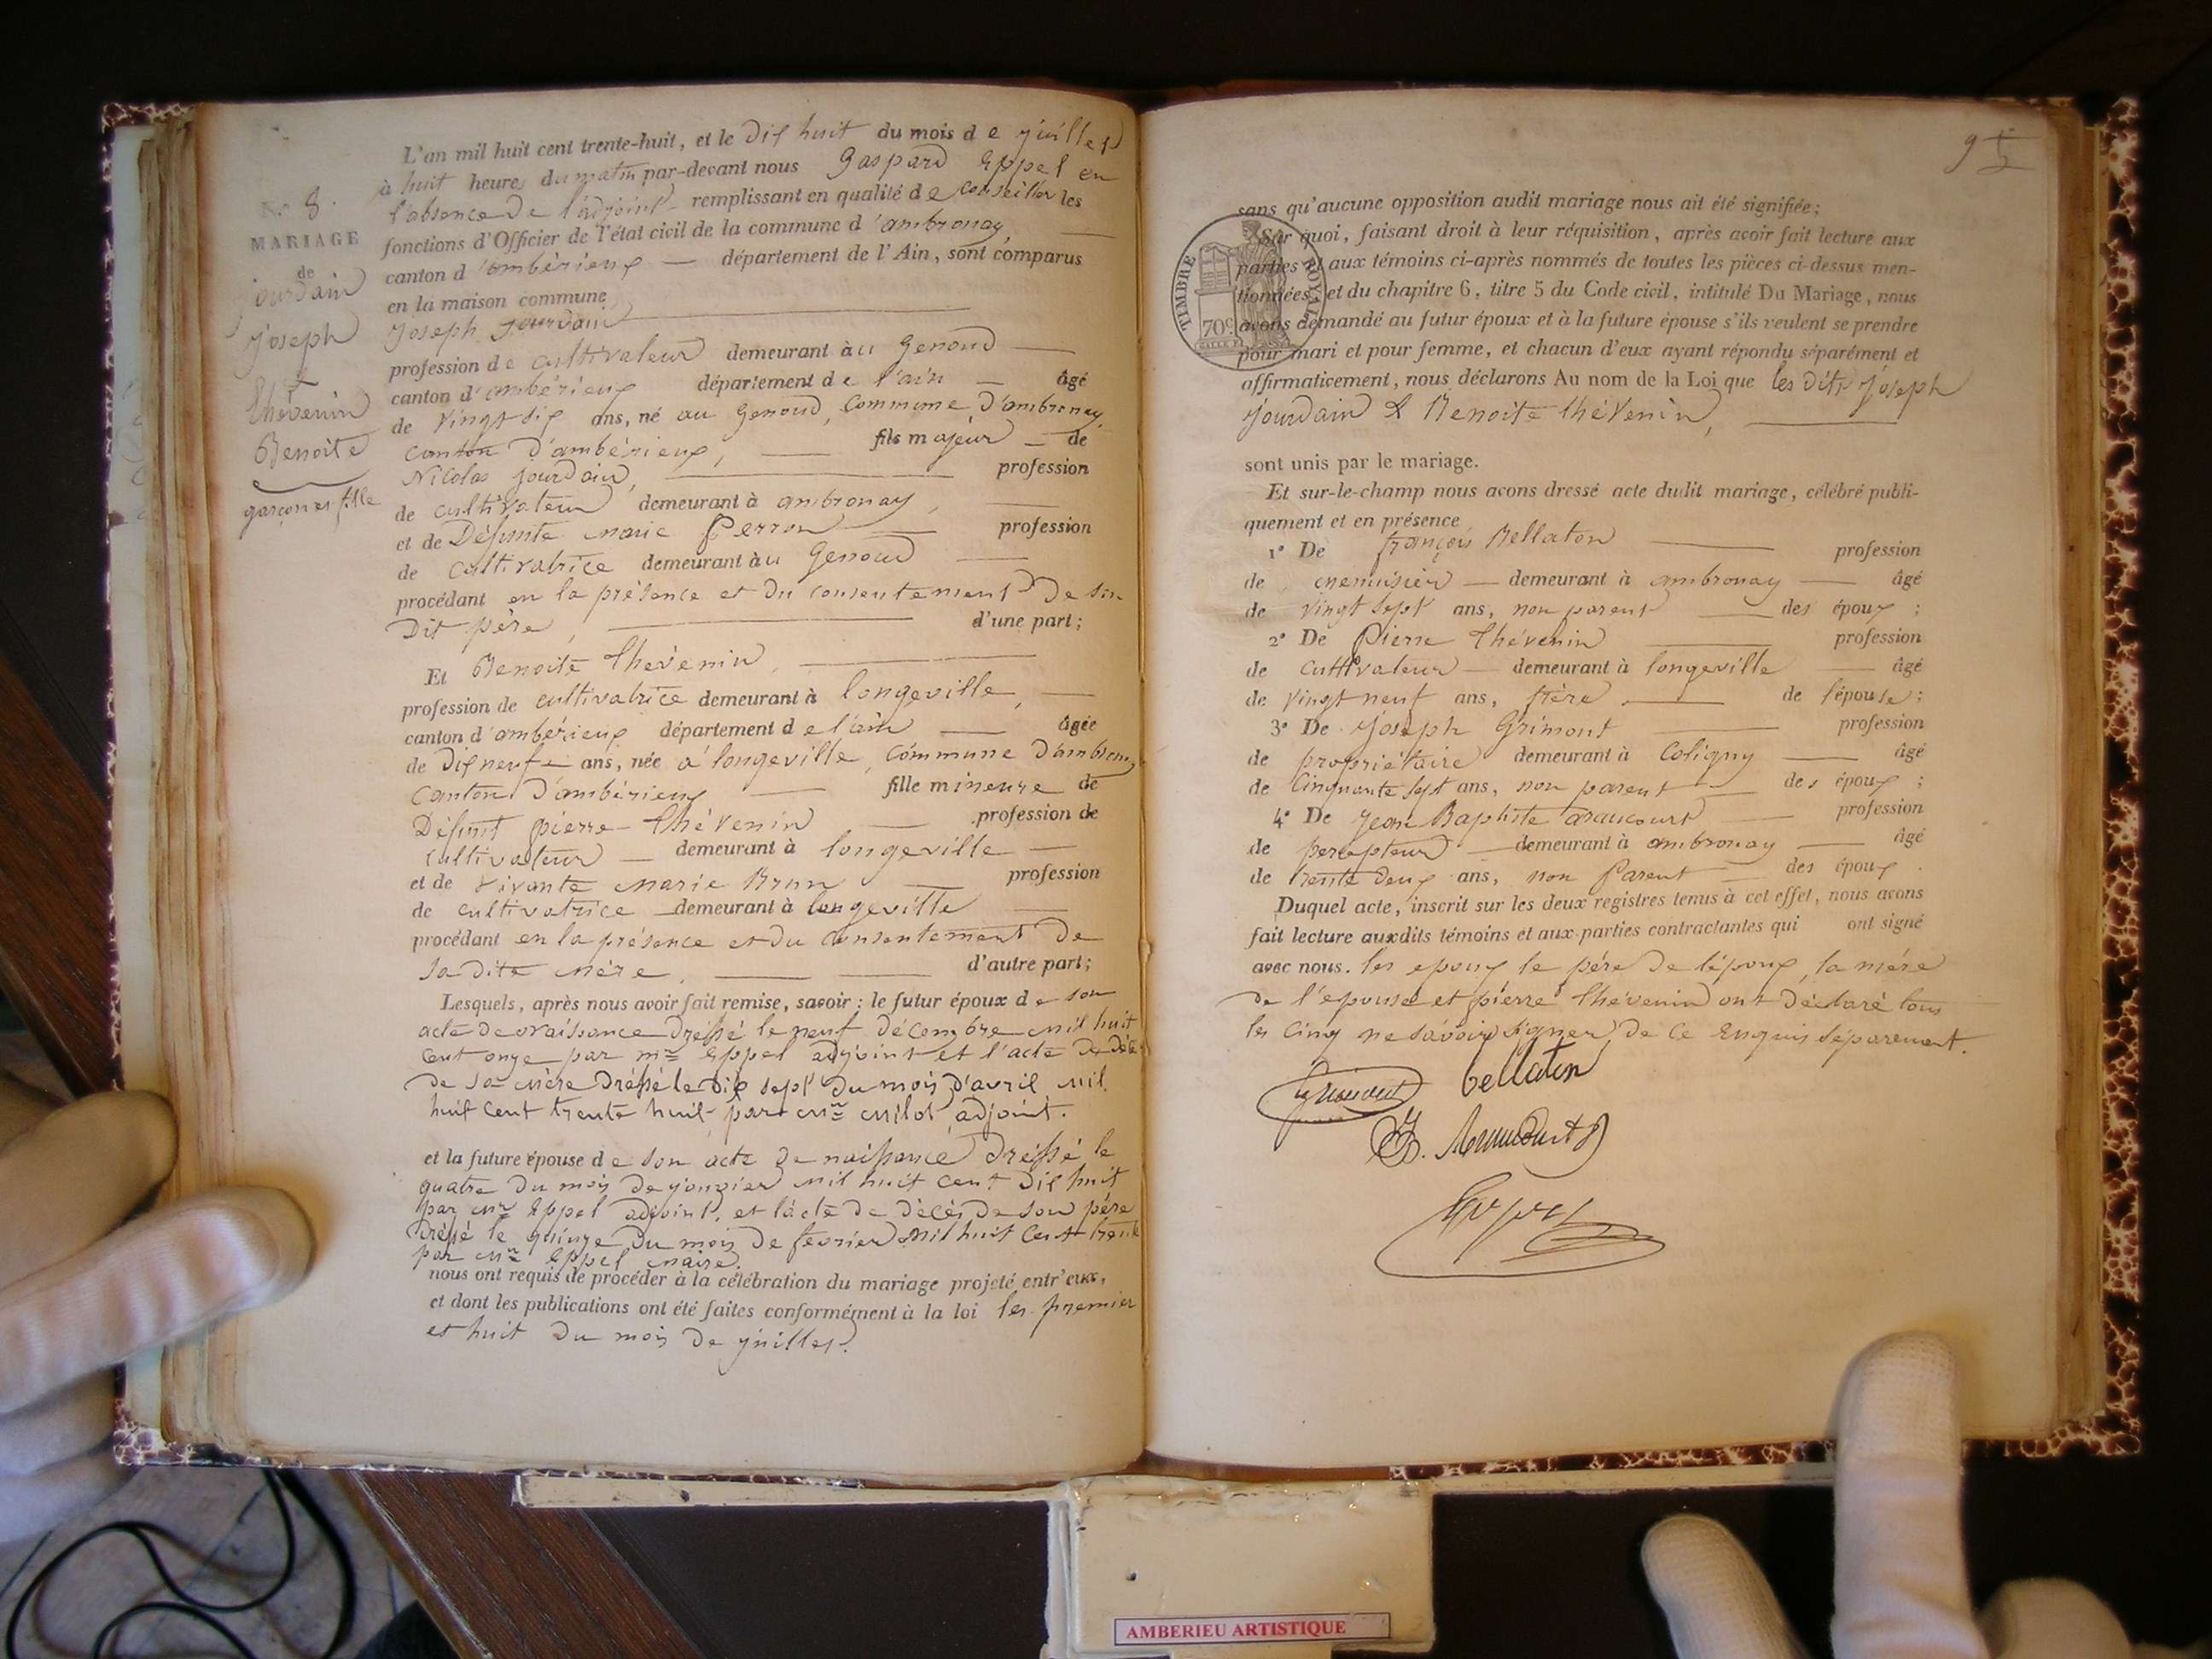 No 8.
MARIAGE
de
jourdain
joseph
&
thévenin
Benoite
garçon et fille
L'an mil huit cent trente-huit, et le dix huit du mois de juillet
à huit heures du matin par-devant nous Gaspard Eppel en
l'absence de l'adjoint remplissant en qualité de conseiller les
fonctions d'Officier de l'état civil de la commune d'ambronay,
canton d'ambérieux — département de l'Ain, sont comparus
en la maison commune
Joseph Jourdain
profession de cultivateur demeurant au Genoud
canton d'ambérieux département de l'ain — âgé
de vingt six ans, né au Genoud, commune d'ambronay,
canton d'ambérieux, fils majeur — de
Nicolas jourdain, profession
de cultivateur demeurant à ambronay,
et de Défunte marie Perron profession
de cultivatrice demeurant au Genoud
procédant en la présence et du consentement de son
Dit père, d'une part;
Et Benoite thevenin,
profession de cultivatrice demeurant à longeville,
canton d'ambérieux département de l'ain âgée
de dix neuf ans, née à longeville, commune d'ambronay
canton d'ambérieux fille mineure de
Défunt pierre thévenin profession de
cultivateur — demeurant à longeville
et de vivante marie Brun profession
de cultivatrice demeurant à longeville
procédant en la présence et du consentement de
sa dite mère, d'autre part;
Lesquels, après nous avoir fait remise, savoir: le futur époux de son
acte de naissance dressé le neuf décembre mil huit
cent onze par mr Eppel adjoint et l'acte de décè
de sa mère dressé le dix sept du mois d'avril mil
huit cent trente huit par mr milot, adjoint.
et la future épouse de son acte de naissance dressé le
quatre du mois de janvier mil huit cent dix huit
par mr Eppel adjoint, et l'acte de décès de son père
dressé le quinze du mois de fevrier mil huit cent trente
par mr Eppel maire.
nous ont requis de procéder à la célébration du mariage projeté entr'eux,
et dont les publications ont été faites conformément à la loi les premier
et huit du mois de juillet.
95
TIMBRE ROYAL
70c
sans qu'aucune opposition audit mariage nous ait été signifiée;
Sur quoi, faisant droit à leur réquisition, après avoir fait lecture aux
parties et aux témoins ci-après nommés de toutes les pièces ci-dessus men-
tionnées, et du chapitre 6, titre 5 du Code civil, intitulé Du Mariage, nous
avons demandé au futur époux et à la future épouse s'ils veulent se prendre
pour mari et pour femme, et chacun d'eux ayant répondu séparément et
affirmativement, nous déclarons Au nom de la Loi que les dits joseph
jourdain & Benoite thévenin,
sont unis par le mariage.
Et sur-le-champ nous avons dressé acte dudit mariage, célébré publi-
quement et en présence
1° De françois Bellaton profession
de menuisier — demeurant à ambronay — âgé
de vingt sept ans, non parent des époux;
2° De Pierre thévenin profession
de cultivateur — demeurant à longeville âgé
de vingt neuf ans, frère de l'épouse;
3° De joseph Grimont profession
de propriétaire demeurant à Coligny âgé
de cinquante sept ans, non parent des époux;
4° De jean Baptiste araucourt profession
de percepteur — demeurant à ambronay âgé
de trente deux ans, non Parent des époux.
Duquel acte, inscrit sur les deux registres tenus à cet effet, nous avons
fait lecture auxdits témoins et aux parties contractantes qui ont signé
avec nous. les epoux le père de l'époux, la mère
de l'epouse et pierre thévenin ont déclaré tous
les cinq ne savoir signer, de ce enquis séparement.
Grimont bellaton
JB. Araucourt
Eppel
AMBERIEU ARTISTIQUE